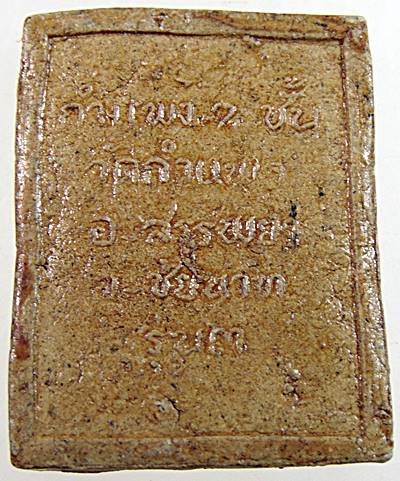 กำแพง ๗ ชั้น
วัดกำแพง
อ. สรรพยา
จ. ชัยนาท